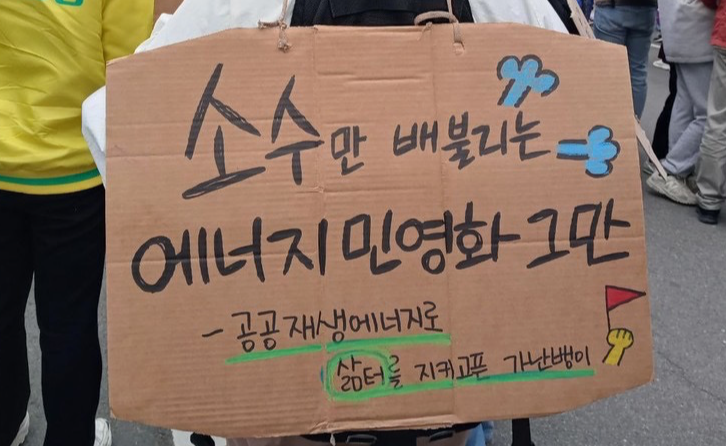 소수만 배불리는
에너지 민영화 그만
- 공공재생에너지로
삶터를 지키고픈 가난뱅이